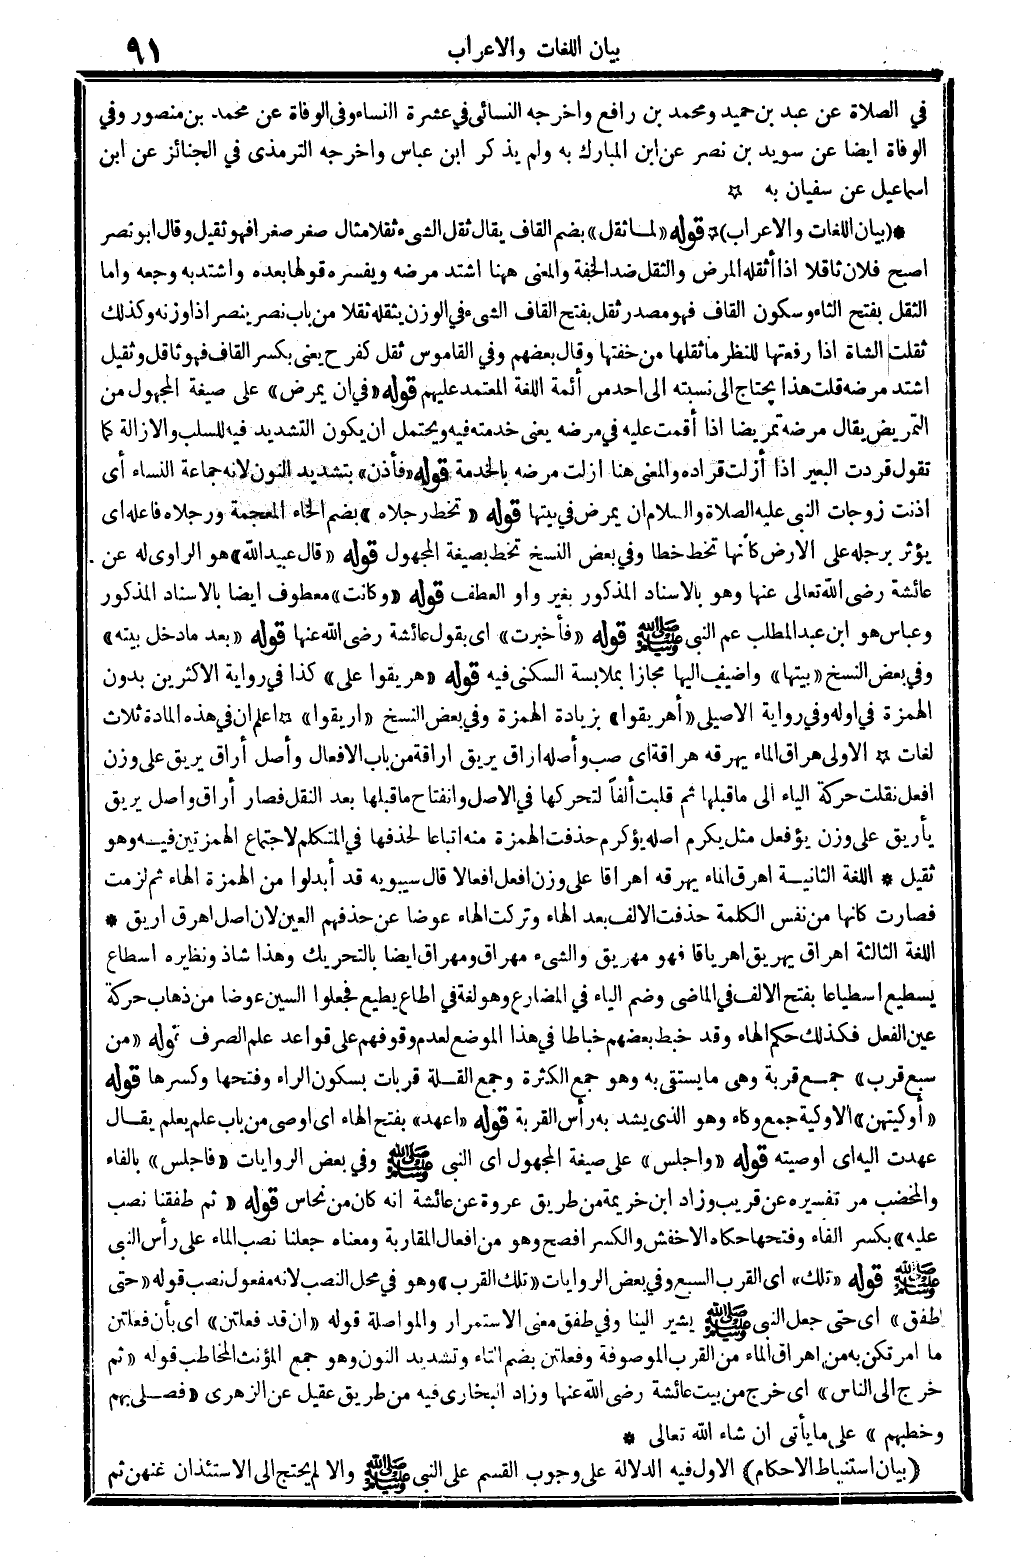 بيان اللغات والاعراب ٩١
في الصلاة عن عبد بن حميد ومحمد بن رافع واخرجه النسائى في عشرة النساء وفى الوفاة عن محمد بن منصور وفي
الوفاة ايضا عن سويد بن نصر عن ابن المبارك به ولم يذكر ابن عباس واخرجه الترمذى في الجنائز عن ابن
اسماعيل عن سفيان به ☆
* (بيان اللغات والاعراب) ☆ قوله «لما ثقل» بضم القاف يقال ثقل الشىء ثقلا مثال صغر صغرا فهو ثقيل وقال ابو نصر
اصبح فلان ثاقلا اذا أثقله المرض والثقل ضد الخفة والمعنى ههنا اشتد مرضه ويفسره قولها بعده واشتد به وجعه واما
الثقل بفتح الثاء وسكون القاف فهو مصدر ثقل بفتح القاف الشىء في الوزن يثقله ثقلا من باب نصر ينصر اذا وزنه وكذلك
ثقلت الشاة اذا رفعتها للنظر ما ثقلها من خفتها وقال بعضهم وفي القاموس ثقل كفرح يعنى بكسر القاف فهو ثاقل وثقيل
اشتد مرضه قلت هذا يحتاج الى نسبته الى احد من أئمة اللغة المعتمد عليهم قوله «في ان يمرض» على صيغة المجهول من
التمريض يقال مرضه تمريضا اذا أقمت عليه في مرضه يعنى خدمته فيه ويحتمل ان يكون التشديد فيه للسلب والازالة كما
تقول قردت البعير اذا أزلت قراده والمعنى هنا ازلت مرضه بالخدمة قوله «فأذن» بتشديد النون لانه جماعة النساء أى
اذنت زوجات النبى عليه الصلاة والسلام ان يمرض في بيتها قوله «تخط رجلاه» بضم الخاء المعجمة ورجلاه فاعله اى
يؤثر برجله على الارض كأنها تخط خطا وفي بعض النسخ تخط بصيغة المجهول قوله «قال عبيد الله» هو الراوى له عن
عائشة رضى الله تعالى عنها وهو بالاسناد المذكور بغير واو العطف قوله «وكانت» معطوف ايضا بالاسناد المذكور
وعباس هو ابن عبد المطلب عم النبى ﷺ قوله «فأخبرت» اى بقول عائشة رضى الله عنها قوله «بعد ما دخل بيته»
وفي بعض النسخ «بيتها» واضيف اليها مجازا بملابسة السكنى فيه قوله «هريقوا على» كذا في رواية الاكثرين بدون
الهمزة في اوله وفي رواية الاصيلى «أهريقوا» بزيادة الهمزة وفي بعض النسخ «اريقوا» ☆ اعلم ان في هذه المادة ثلاث
لغات ☆ الاولى هراق الماء يهرقه هراقة اى صب وأصله اراق يريق اراقة من باب الافعال وأصل أراق يريق على وزن
افعل نقلت حركة الياء الى ما قبلها ثم قلبت ألفاً لتحركها في الاصل وانفتاح ما قبلها بعد النقل فصار أراق واصل يريق
يأريق على وزن يؤفعل مثل يكرم اصله يؤكرم حذفت الهمزة منه اتباعا لحذفها في المتكلم لاجتماع الهمزتين فيه وهو
ثقيل * اللغة الثانية اهرق الماء يهرقه اهراقا على وزن افعل افعالا قال سيبويه قد أبدلوا من الهمزة الهاء ثم لزمت
فصارت كانها من نفس الكلمة حذفت الالف بعد الهاء وتركت الهاء عوضا عن حذفهم العين لان اصل اهرق اريق *
اللغة الثالثة اهراق يهريق اهرياقا فهو مهريق والشىء مهراق ومهراق ايضا بالتحريك وهذا شاذ ونظيره اسطاع
يسطيع اسطياعا بفتح الالف في الماضى وضم الياء في المضارع وهو لغة في اطاع يطيع فجعلوا السين عوضا من ذهاب حركة
عين الفعل فكذلك حكم الهاء وقد خبط بعضهم خباطا في هذا الموضع لعدم وقوفهم على قواعد علم الصرف قوله «من
سبع قرب» جمع قربة وهى ما يستقى به وهو جمع الكثرة وجمع القلة قربات بسكون الراء وفتحها وكسرها قوله
«أوكيتهن» الاوكية جمع وكاء وهو الذى يشد به رأس القربة قوله «اعهد» بفتح الهاء اى اوصى من باب علم يعلم يقال
عهدت اليه اى اوصيته قوله «واجلس» على صيغة المجهول اى النبى ﷺ وفي بعض الروايات «فاجلس» بالفاء
والمخضب مر تفسيره عن قريب وزاد ابن خزيمة من طريق عروة عن عائشة انه كان من نحاس قوله «ثم طفقنا نصب
عليه» بكسر الفاء وفتحها حكاه الاخفش والكسر افصح وهو من افعال المقاربة ومعناه جعلنا نصب الماء على رأس النبى
ﷺ قوله «تلك» اى القرب السبع وفي بعض الروايات «تلك القرب» وهو في محل النصب لانه مفعول نصب قوله «حتى
طفق» اى حتى جعل النبى ﷺ يشير الينا وفي طفق معنى الاستمرار والمواصلة قوله «ان قد فعلتن» اى بأن فعلتن
ما امرتكن به من اهراق الماء من القرب الموصوفة وفعلتن بضم التاء وتشديد النون وهو جمع المؤنث المخاطب قوله «ثم
خرج الى الناس» اى خرج من بيت عائشة رضى الله عنها وزاد البخارى فيه من طريق عقيل عن الزهرى «فصلى بهم
وخطبهم» على ما يأتى ان شاء الله تعالى *
(بيان استنباط الاحكام) الاول فيه الدلالة على وجوب القسم على النبى ﷺ والا لم يحتج الى الاستئذان عنهن ثم